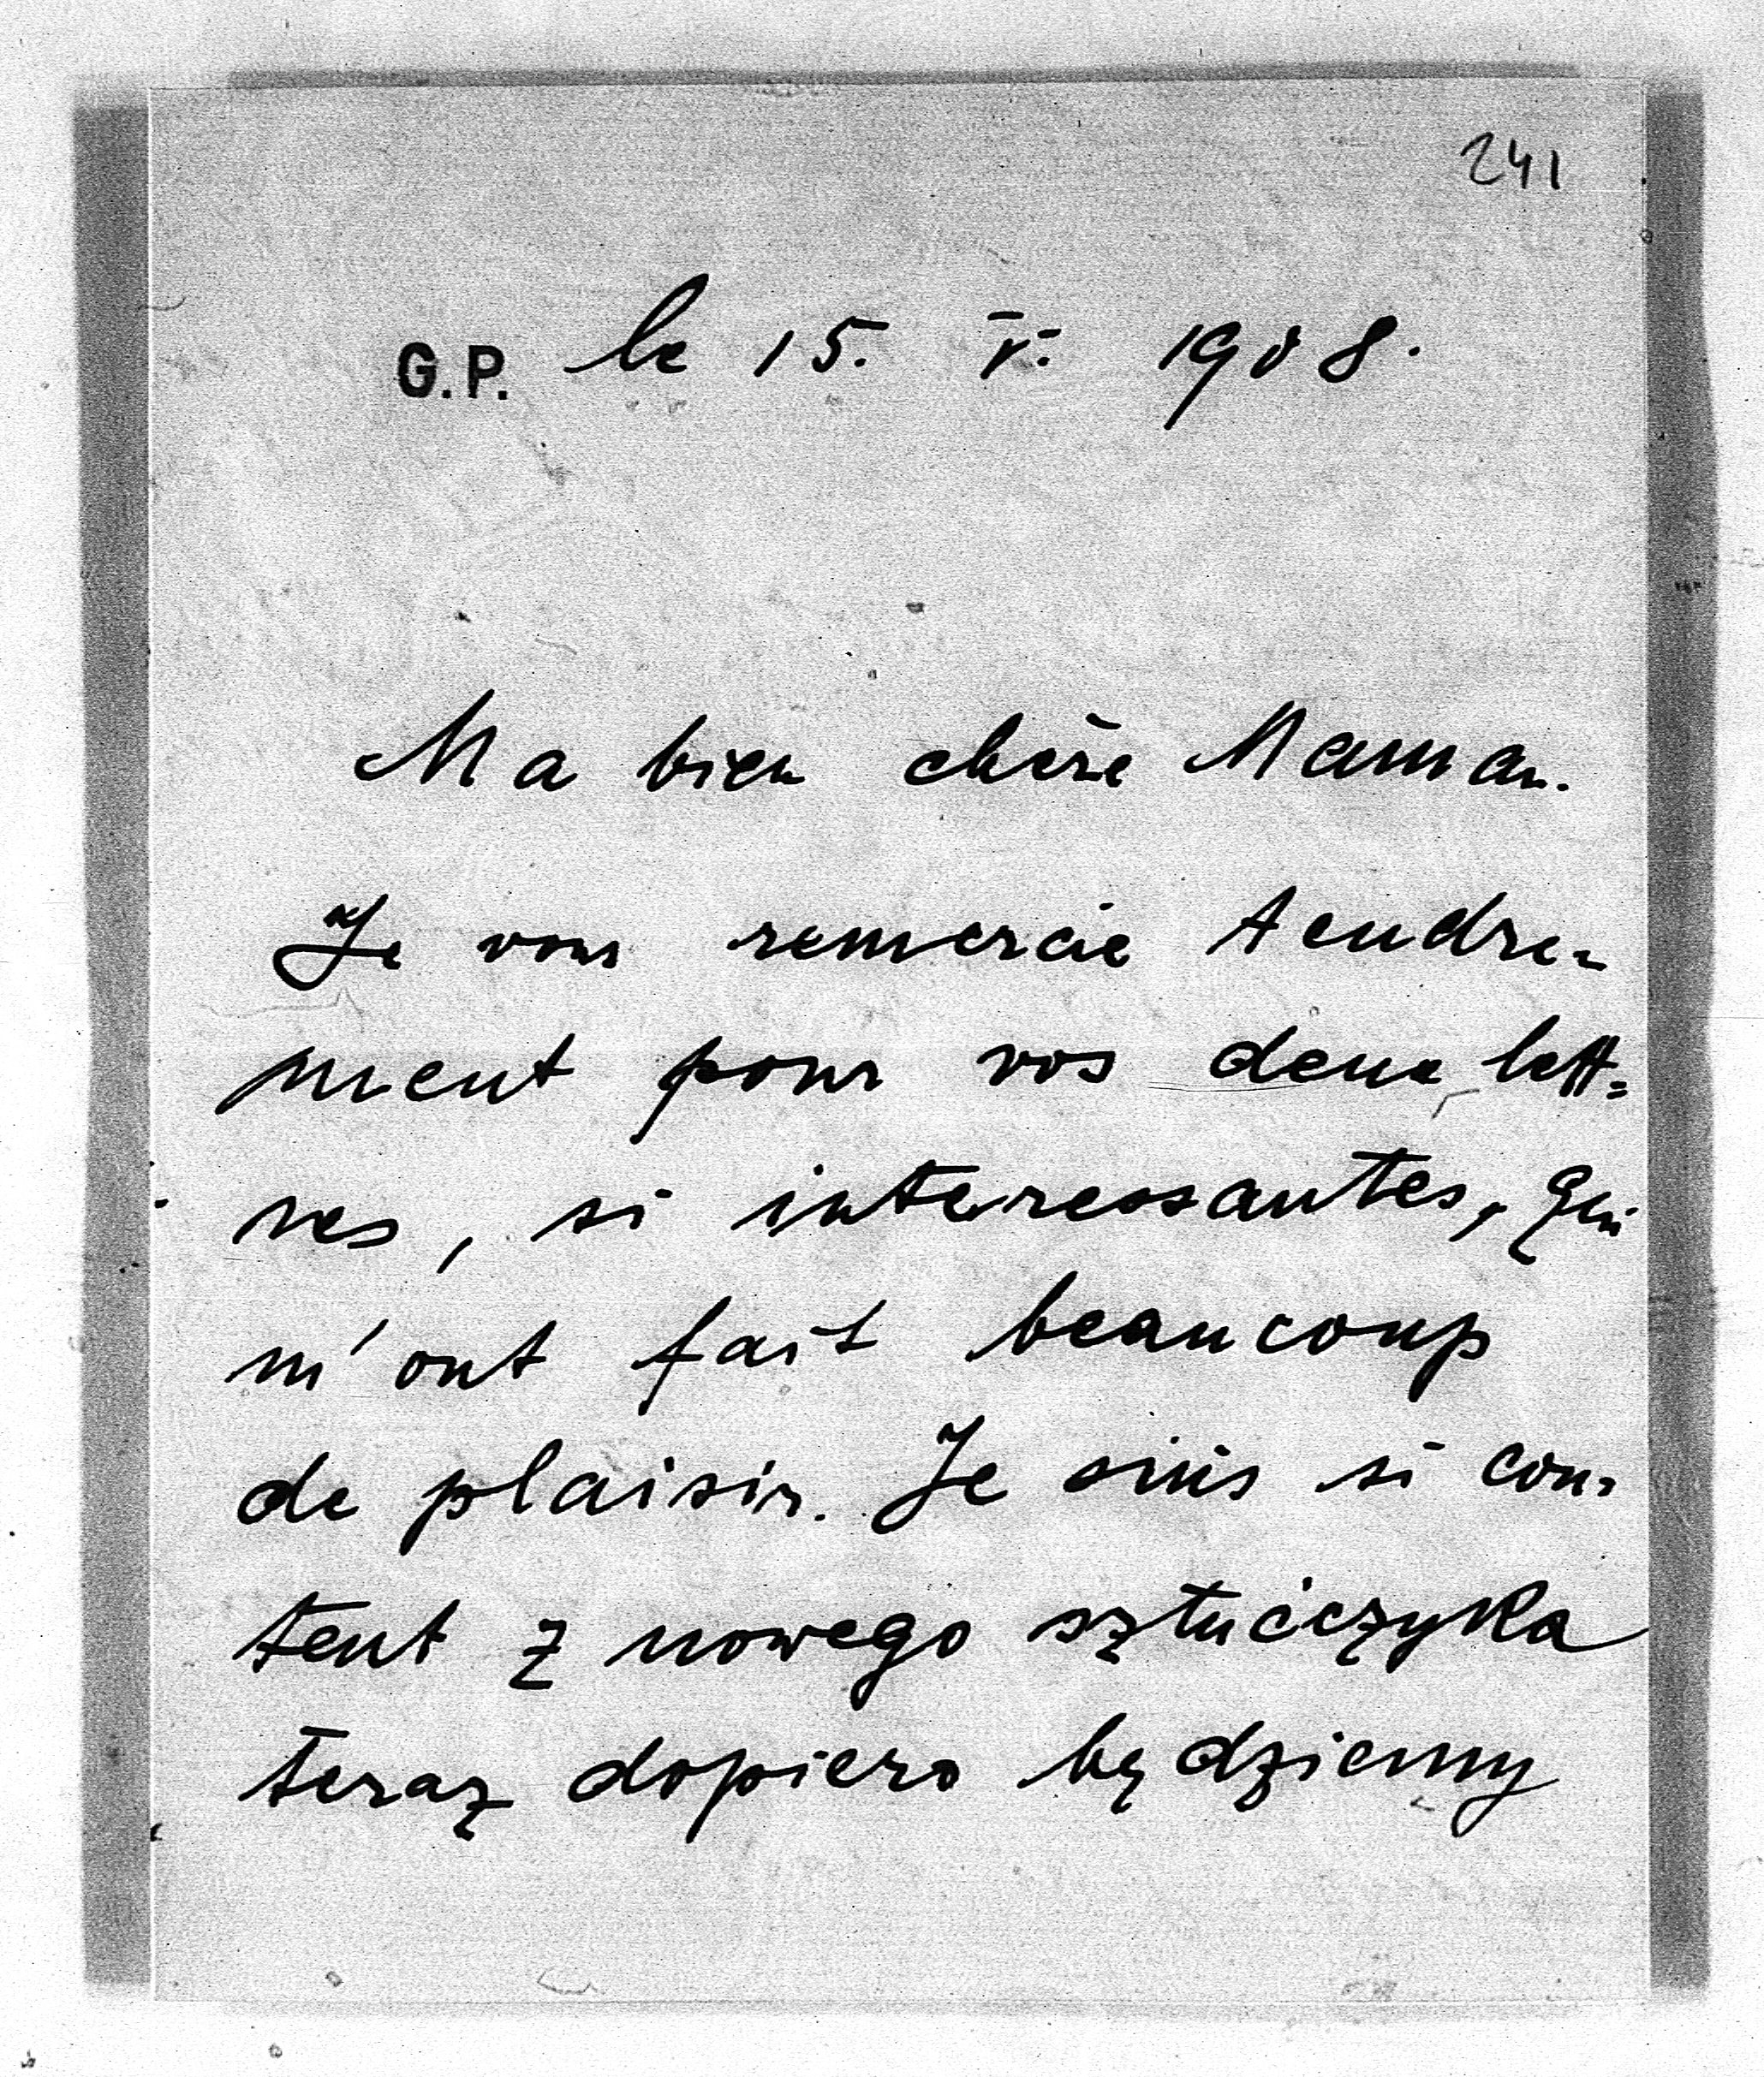 241
G.P. le 15. V. 1908.
Ma bien chère Maman.
Je vous remercie tendre-
ment pour vos deux lett=
res, si interessantes, qui
m'ont fait beaucoup
de plaisir. Je suis si con-
tent z nowego sztućczyka
teraz dopiero będziemy